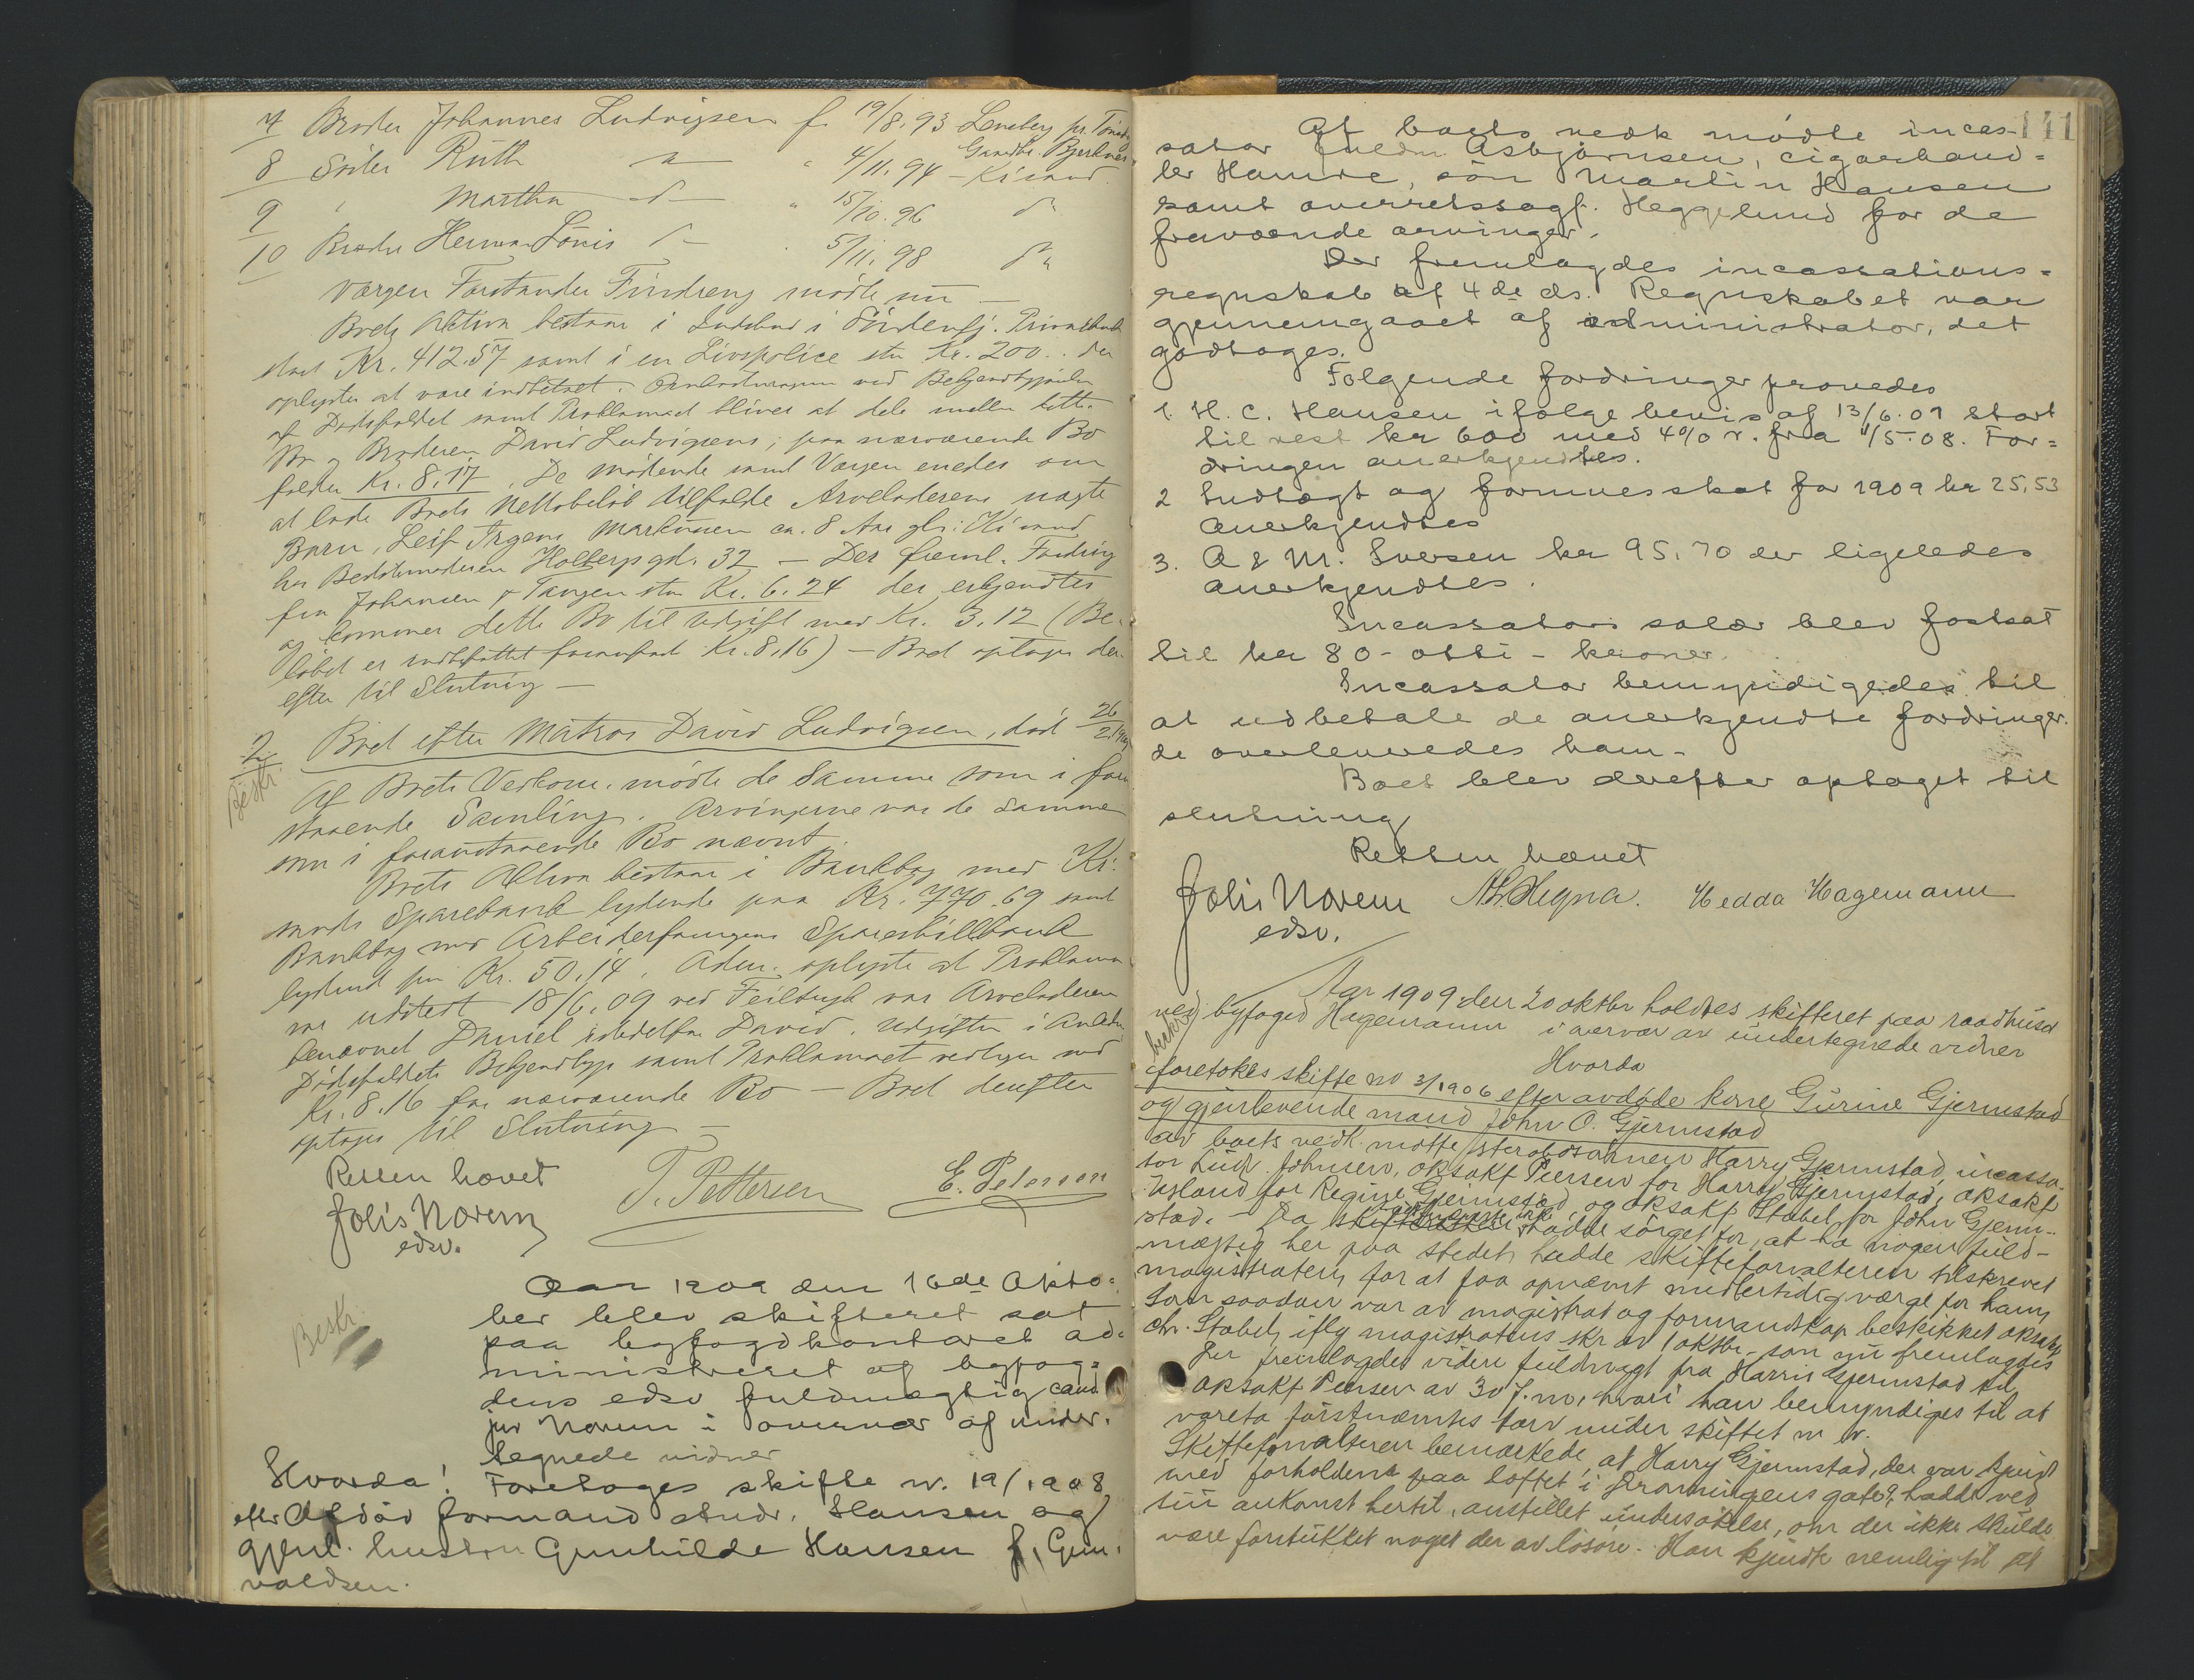 7 Broder Johannes Ludvigsen f. 19/8.93
8 Söster Ruth " 4/11.94 - Kr.sand
9 " Martha d " 15/10.96 d"
10 Broder Herman Lönis 5/11.98 d"
Værgen Forstander Findreng mödte nu
Boets Aktiva bestaar i Indskud i Sörlandsj. Privatbank
stort Kr. 412.57 samt i en Livspolice stor Kr. 200.. der
oplystes at være indbetalt. ved Bekjendtgjörelse
af Dödsfaldet samt Proklamaet bliver at dele mellem dette
Bo og Broderen David Ludvigsens; paa nærværende Bo
falder Kr. 8.17. De mödende samt Værgen enedes om
at lade Boets Nettobelöb tilfalde Arveladerens uægte
Barn, Leif Trygve Markussen ca. 8 Aar gl. Kr.sand
hos Bedstemoderen Holbergs gd. 32 - Der freml. Fordring
fra Johansen & Tangen stor Kr. 6.24 der erkjendtes
og kommer dette Bo til Udgift med Kr. 3.12 (Be-
löbet er indbefattet foranförte Kr. 8.16) - Boet optages der
efter til Slutning -
2 Boet efter Matros David Ludvigsen, död 26/2 1909
Beskr.
Af Boets Vedkom. mödte de Samme som i foran
staaende Samling. Arvingerne var de Samme
som i foranstaaende Bo nævnt
Boets Aktiva bestaar i Bankbog med Kr.
sands Sparebank lydende paa Kr. 770.69 samt
Bankbog med Arbeiderforeningens Spareskillbank
lydende paa Kr. 50.14. Adm. oplyste at Proklama
var udstedt 18/6.09 ved Feiltryk var Arveladeren
benævnt Daniel istedetfor David. Udgifter i Anledn.
Dödsfaldets Bekjendtgj. samt Proklamaet vedtoges med
Kr. 8.16 for nærværende Bo - Boet derefter
optages til Slutning -
Retten hævet
Jolis Norem T. Pettersen E. Petersen
edsv.
Aar 1909 den 16de Okto-
Beskr.
ber blev skifteret sat
paa byfogdkontoret ad-
ministreret af byfog-
dens edsv fuldmægtig cand
jur Norem i overvær af under-
tegnede vidner
Hvorda! Foretoges skifte nr. 19/1908
efter Afdöd formand Andr. Hansen og
gjenl. hustru Gunhilde Hansen f. Gun-
valdsen.
141
Af boets vedk mödte incas-
sator Asbjörnsen, cigarhand-
ler Hamre, sön Martin Hansen
samt overretssagf. Heggelund for de
fraværende arvinger.
Der fremlagdes incassations-
regnskab af 4de ds. Regnskabet var
gjennemgaaet af administrator, det
godtoges.
Fölgende fordringer prövedes
1. H. C. Hansen ifölge bevis af 13/6.07 stort
til rest kr 600 med 4% r. fra 11/5.08. For-
dringen anerkjendtes.
2 Indtægt og formuesskat for 1909 kr 25,53
anerkjendtes
3. A & M. Iversen kr 95.70 der ligeledes
anerkjendtes.
Incassators salær blev fastsat
til kr 80 - otti - kroner.
Incassator bemyndigedes til
at udbetale de anerkjendte fordringer.
de overleveredes ham -
Boet blev derefter optaget til
slutning
Retten hævet
Jolis Norem Hegna. Hedda Hagemann
edsv.
Aar 1909 den 20 oktbr holdtes skifteret paa raadhuset
ved byfoged Hagemann i nærvær av undertegnede vidner
Hvorda
foretokes skifte no 3/1906 efter avdöde kone Gurine Gjermstad
og gjenlevende mand John O. Gjermstad
av boets vedk. mötte sterbosönnen Harry Gjermstad, incassa-
tor Ludv. Johnsen, oksakf Peersen for Harry Gjermstad, oksakf
Usland for Regine Gjermstad og oksakf Stabel for John Gjerm-
stad. - Da ikke hadde sörget for, at ha nogen fuld-
mægtig her paa stedet, hadde skifteforvalteren tilskrevet
magistraten for at faa opnævnt midlertidig værge for ham,
Som saadan var av magistrat og formandskap beskikket oksakf
Chr. Stabel, iflg magistratens skr av 1 oktbr, som nu fremlagdes
Der fremlagdes videre fuldmagt fra Harris Gjermstad til
oksakf Peersen av 30 f.m, hvori han bemyndiges til at
vareta förstnævntes tarv under skiftet m v.
Skifteforvalteren bemærkede, at Harry Gjermstad, der var kjendt
med forholdene paa loftet i Dronningens gate 9, hadde ved
sin ankomst hertil, anstillet undersökelse, om der ikke skulde
være forstukket noget der av lösöre. Han kjendte nemlig til at